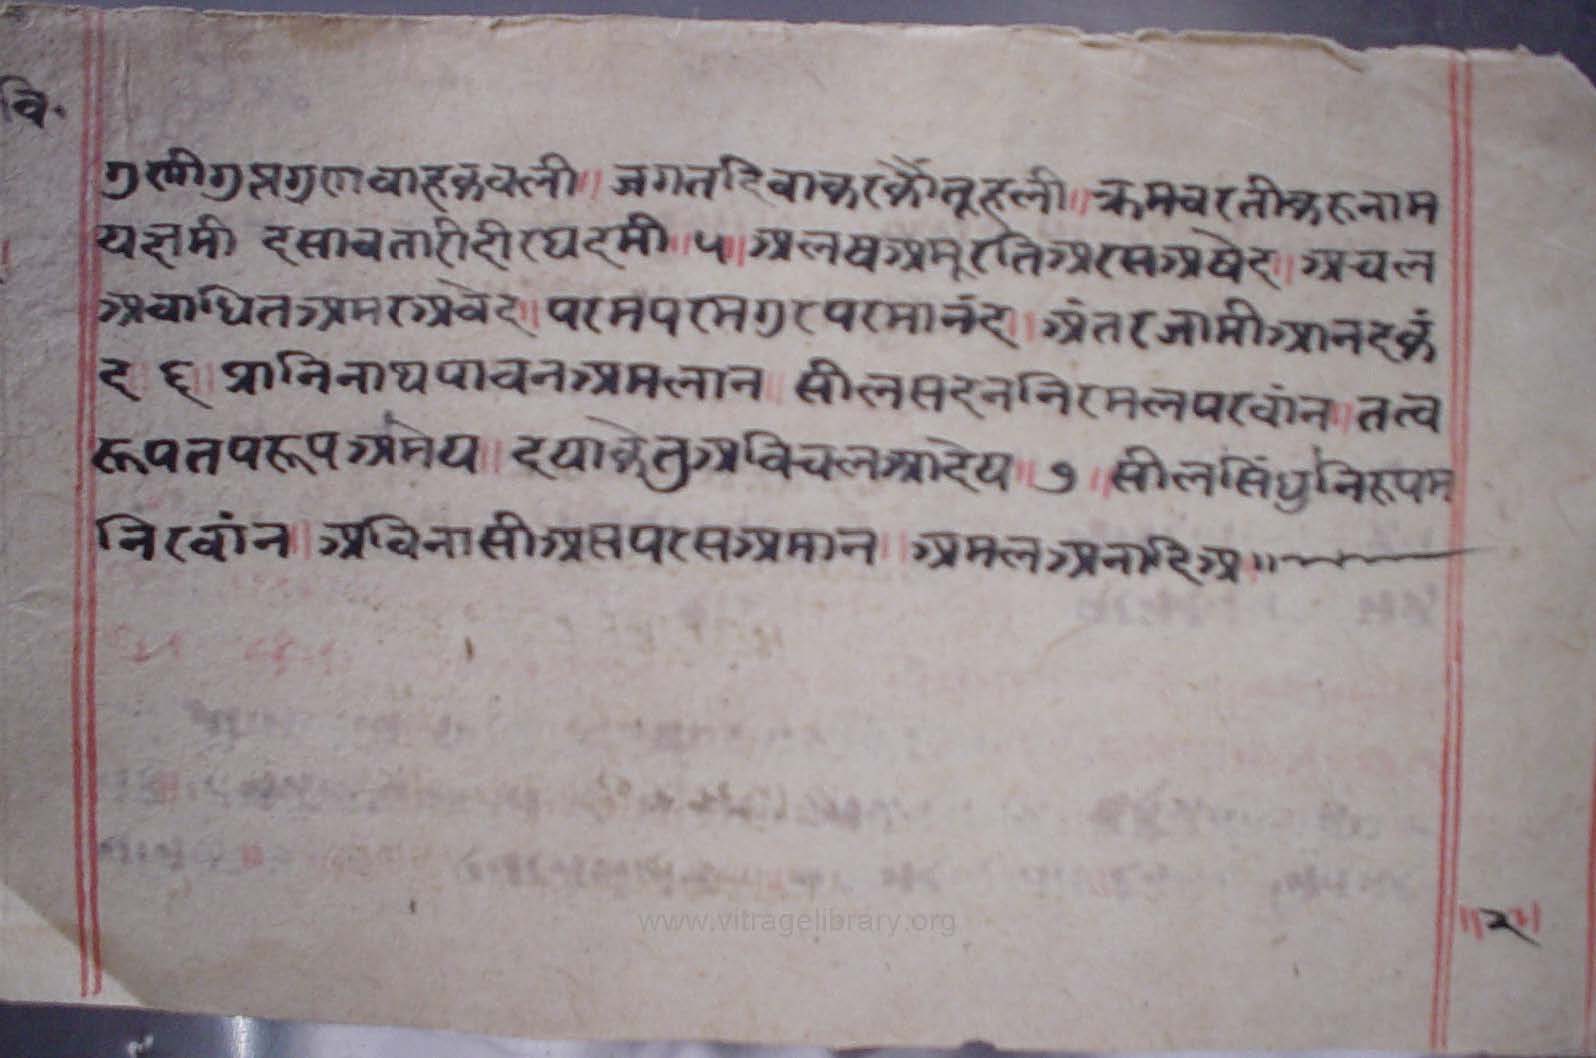 वि.
गुणीगुप्तगुणवाहकवली॥ जगतदिवाकरकौतूहली॥ क्रमवरतीकरुनाम
यछमी दसावतारीदीरघदमी॥५॥अलषअमूरतिअरसअषेद॥ अचल
अवाधितअमरअवेद॥ परमपरमगुरपरमानंद॥ अंतरजामीआनदकं
द॥६॥ प्रानिनाथपावनअमलान॥ सीलसदननिरमलपरवांन॥ तत्व
रूपतपरूपअमेय॥ दयाकेतुअविचलआदेय॥७॥ सीलसिंधुनिरुपम
निरवांन॥ अविनासीअसपरसअमान॥ अमलअनादिअ॥
॥२॥
www.vitragelibrary.org